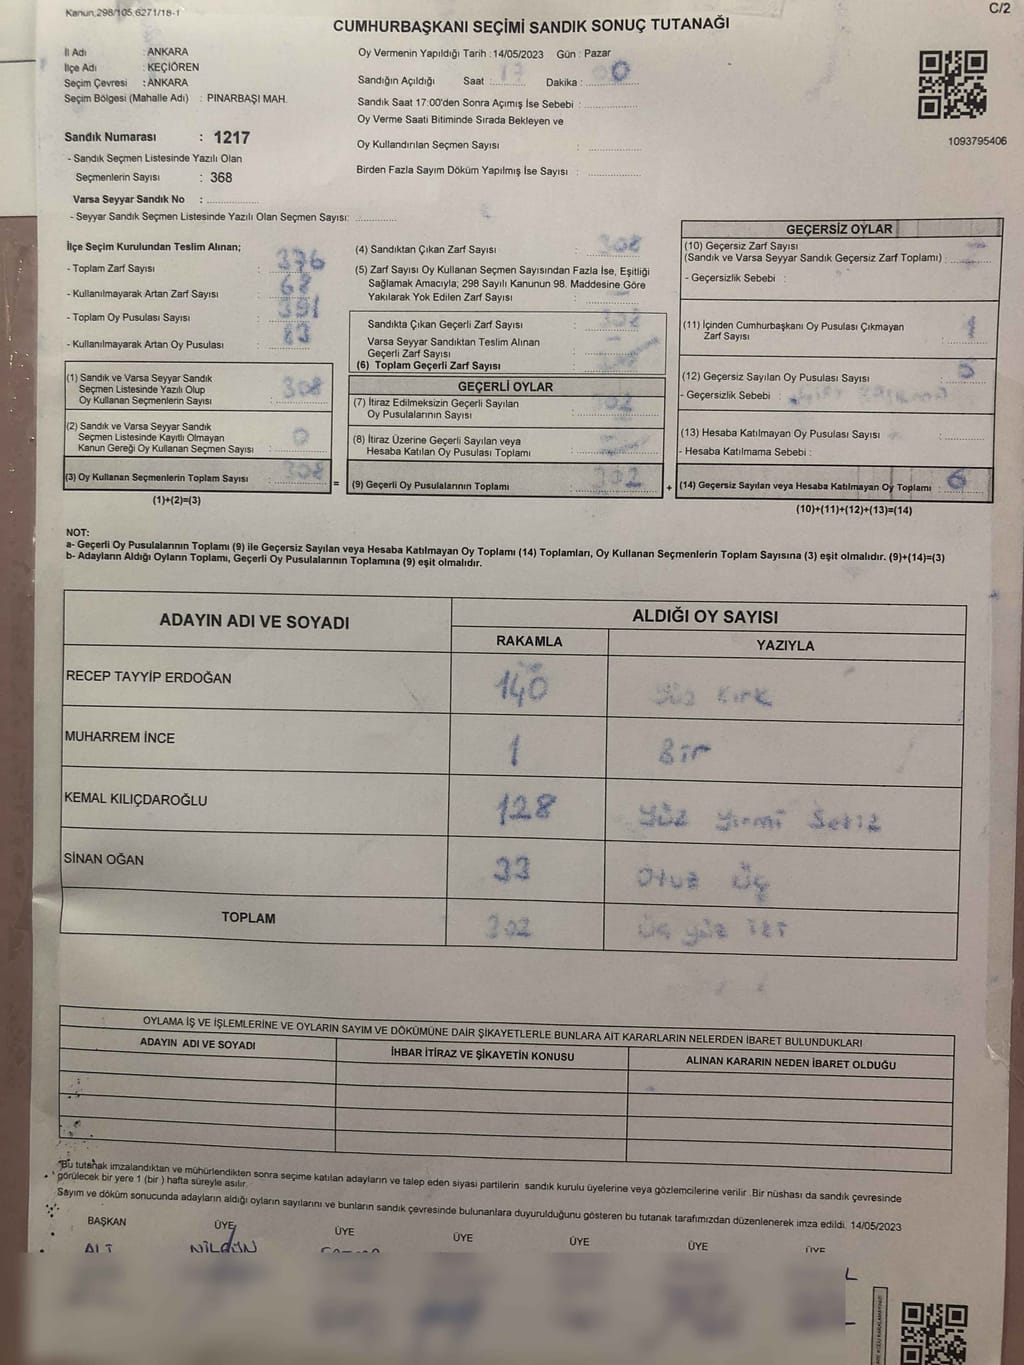 Kanun,298/105,6271/18-1
C/2
CUMHURBAŞKANI SEÇİMİ SANDIK SONUÇ TUTANAĞI
İl Adı : ANKARA
İlçe Adı : KEÇİÖREN
Seçim Çevresi : ANKARA
Seçim Bölgesi (Mahalle Adı) : PINARBAŞI MAH.
Sandık Numarası : 1217
- Sandık Seçmen Listesinde Yazılı Olan
Seçmenlerin Sayısı : 368
Varsa Seyyar Sandık No : ..............
- Seyyar Sandık Seçmen Listesinde Yazılı Olan Seçmen Sayısı: ............
Oy Vermenin Yapıldığı Tarih : 14/05/2023 Gün : Pazar
Sandığın Açıldığı Saat : 17 Dakika : 00
Sandık Saat 17:00'den Sonra Açımış İse Sebebi : ..............
Oy Verme Saati Bitiminde Sırada Bekleyen ve
Oy Kullandırılan Seçmen Sayısı : ..............
Birden Fazla Sayım Döküm Yapılmış İse Sayısı : ..............
1093795406
İlçe Seçim Kurulundan Teslim Alınan;
- Toplam Zarf Sayısı : 376
- Kullanılmayarak Artan Zarf Sayısı : 68
- Toplam Oy Pusulası Sayısı : 391
- Kullanılmayarak Artan Oy Pusulası : 83
(1) Sandık ve Varsa Seyyar Sandık
Seçmen Listesinde Yazılı Olup
Oy Kullanan Seçmenlerin Sayısı : 308
(2) Sandık ve Varsa Seyyar Sandık
Seçmen Listesinde Kayıtlı Olmayan
Kanun Gereği Oy Kullanan Seçmen Sayısı : 0
(3) Oy Kullanan Seçmenlerin Toplam Sayısı : 308
(1)+(2)=(3)
=
(4) Sandıktan Çıkan Zarf Sayısı : 308
(5) Zarf Sayısı Oy Kullanan Seçmen Sayısından Fazla İse, Eşitliği
Sağlamak Amacıyla; 298 Sayılı Kanunun 98. Maddesine Göre
Yakılarak Yok Edilen Zarf Sayısı :
Sandıkta Çıkan Geçerli Zarf Sayısı : 302
Varsa Seyyar Sandıktan Teslim Alınan
Geçerli Zarf Sayısı :
(6) Toplam Geçerli Zarf Sayısı :
GEÇERLİ OYLAR
(7) İtiraz Edilmeksizin Geçerli Sayılan
Oy Pusulalarının Sayısı : 302
(8) İtiraz Üzerine Geçerli Sayılan veya
Hesaba Katılan Oy Pusulası Toplamı :
(9) Geçerli Oy Pusulalarının Toplamı : 302
+
GEÇERSİZ OYLAR
(10) Geçersiz Zarf Sayısı
(Sandık ve Varsa Seyyar Sandık Geçersiz Zarf Toplamı) :
- Geçersizlik Sebebi :
(11) İçinden Cumhurbaşkanı Oy Pusulası Çıkmayan
Zarf Sayısı : 1
(12) Geçersiz Sayılan Oy Pusulası Sayısı : 5
- Geçersizlik Sebebi :
(13) Hesaba Katılmayan Oy Pusulası Sayısı : ..............
- Hesaba Katılmama Sebebi :
(14) Geçersiz Sayılan veya Hesaba Katılmayan Oy Toplamı : 6
(10)+(11)+(12)+(13)=(14)
NOT:
a- Geçerli Oy Pusulalarının Toplamı (9) ile Geçersiz Sayılan veya Hesaba Katılmayan Oy Toplamı (14) Toplamları, Oy Kullanan Seçmenlerin Toplam Sayısına (3) eşit olmalıdır. (9)+(14)=(3)
b- Adayların Aldığı Oyların Toplamı, Geçerli Oy Pusulalarının Toplamına (9) eşit olmalıdır.
ADAYIN ADI VE SOYADI
ALDIĞI OY SAYISI
RAKAMLA YAZIYLA
RECEP TAYYİP ERDOĞAN 140 Yüz Kırk
MUHARREM İNCE 1 Bir
KEMAL KILIÇDAROĞLU 128 Yüz Yirmi Sekiz
SİNAN OĞAN 33 Otuz Üç
TOPLAM 302 Üç yüz iki
OYLAMA İŞ VE İŞLEMLERİNE VE OYLARIN SAYIM VE DÖKÜMÜNE DAİR ŞİKAYETLERLE BUNLARA AİT KARARLARIN NELERDEN İBARET BULUNDUKLARI
ADAYIN ADI VE SOYADI İHBAR İTİRAZ VE ŞİKAYETİN KONUSU ALINAN KARARIN NEDEN İBARET OLDUĞU
*Bu tutanak imzalandıktan ve mühürlendikten sonra seçime katılan adayların ve talep eden siyasi partilerin sandık kurulu üyelerine veya gözlemcilerine verilir. Bir nüshası da sandık çevresinde
görülecek bir yere 1 (bir ) hafta süreyle asılır.
Sayım ve döküm sonucunda adayların aldığı oyların sayılarını ve bunların sandık çevresinde bulunanlara duyurulduğunu gösteren bu tutanak tarafımızdan düzenlenerek imza edildi. 14/05/2023
BAŞKAN ÜYE ÜYE ÜYE ÜYE ÜYE ÜYE
NİLGÜN